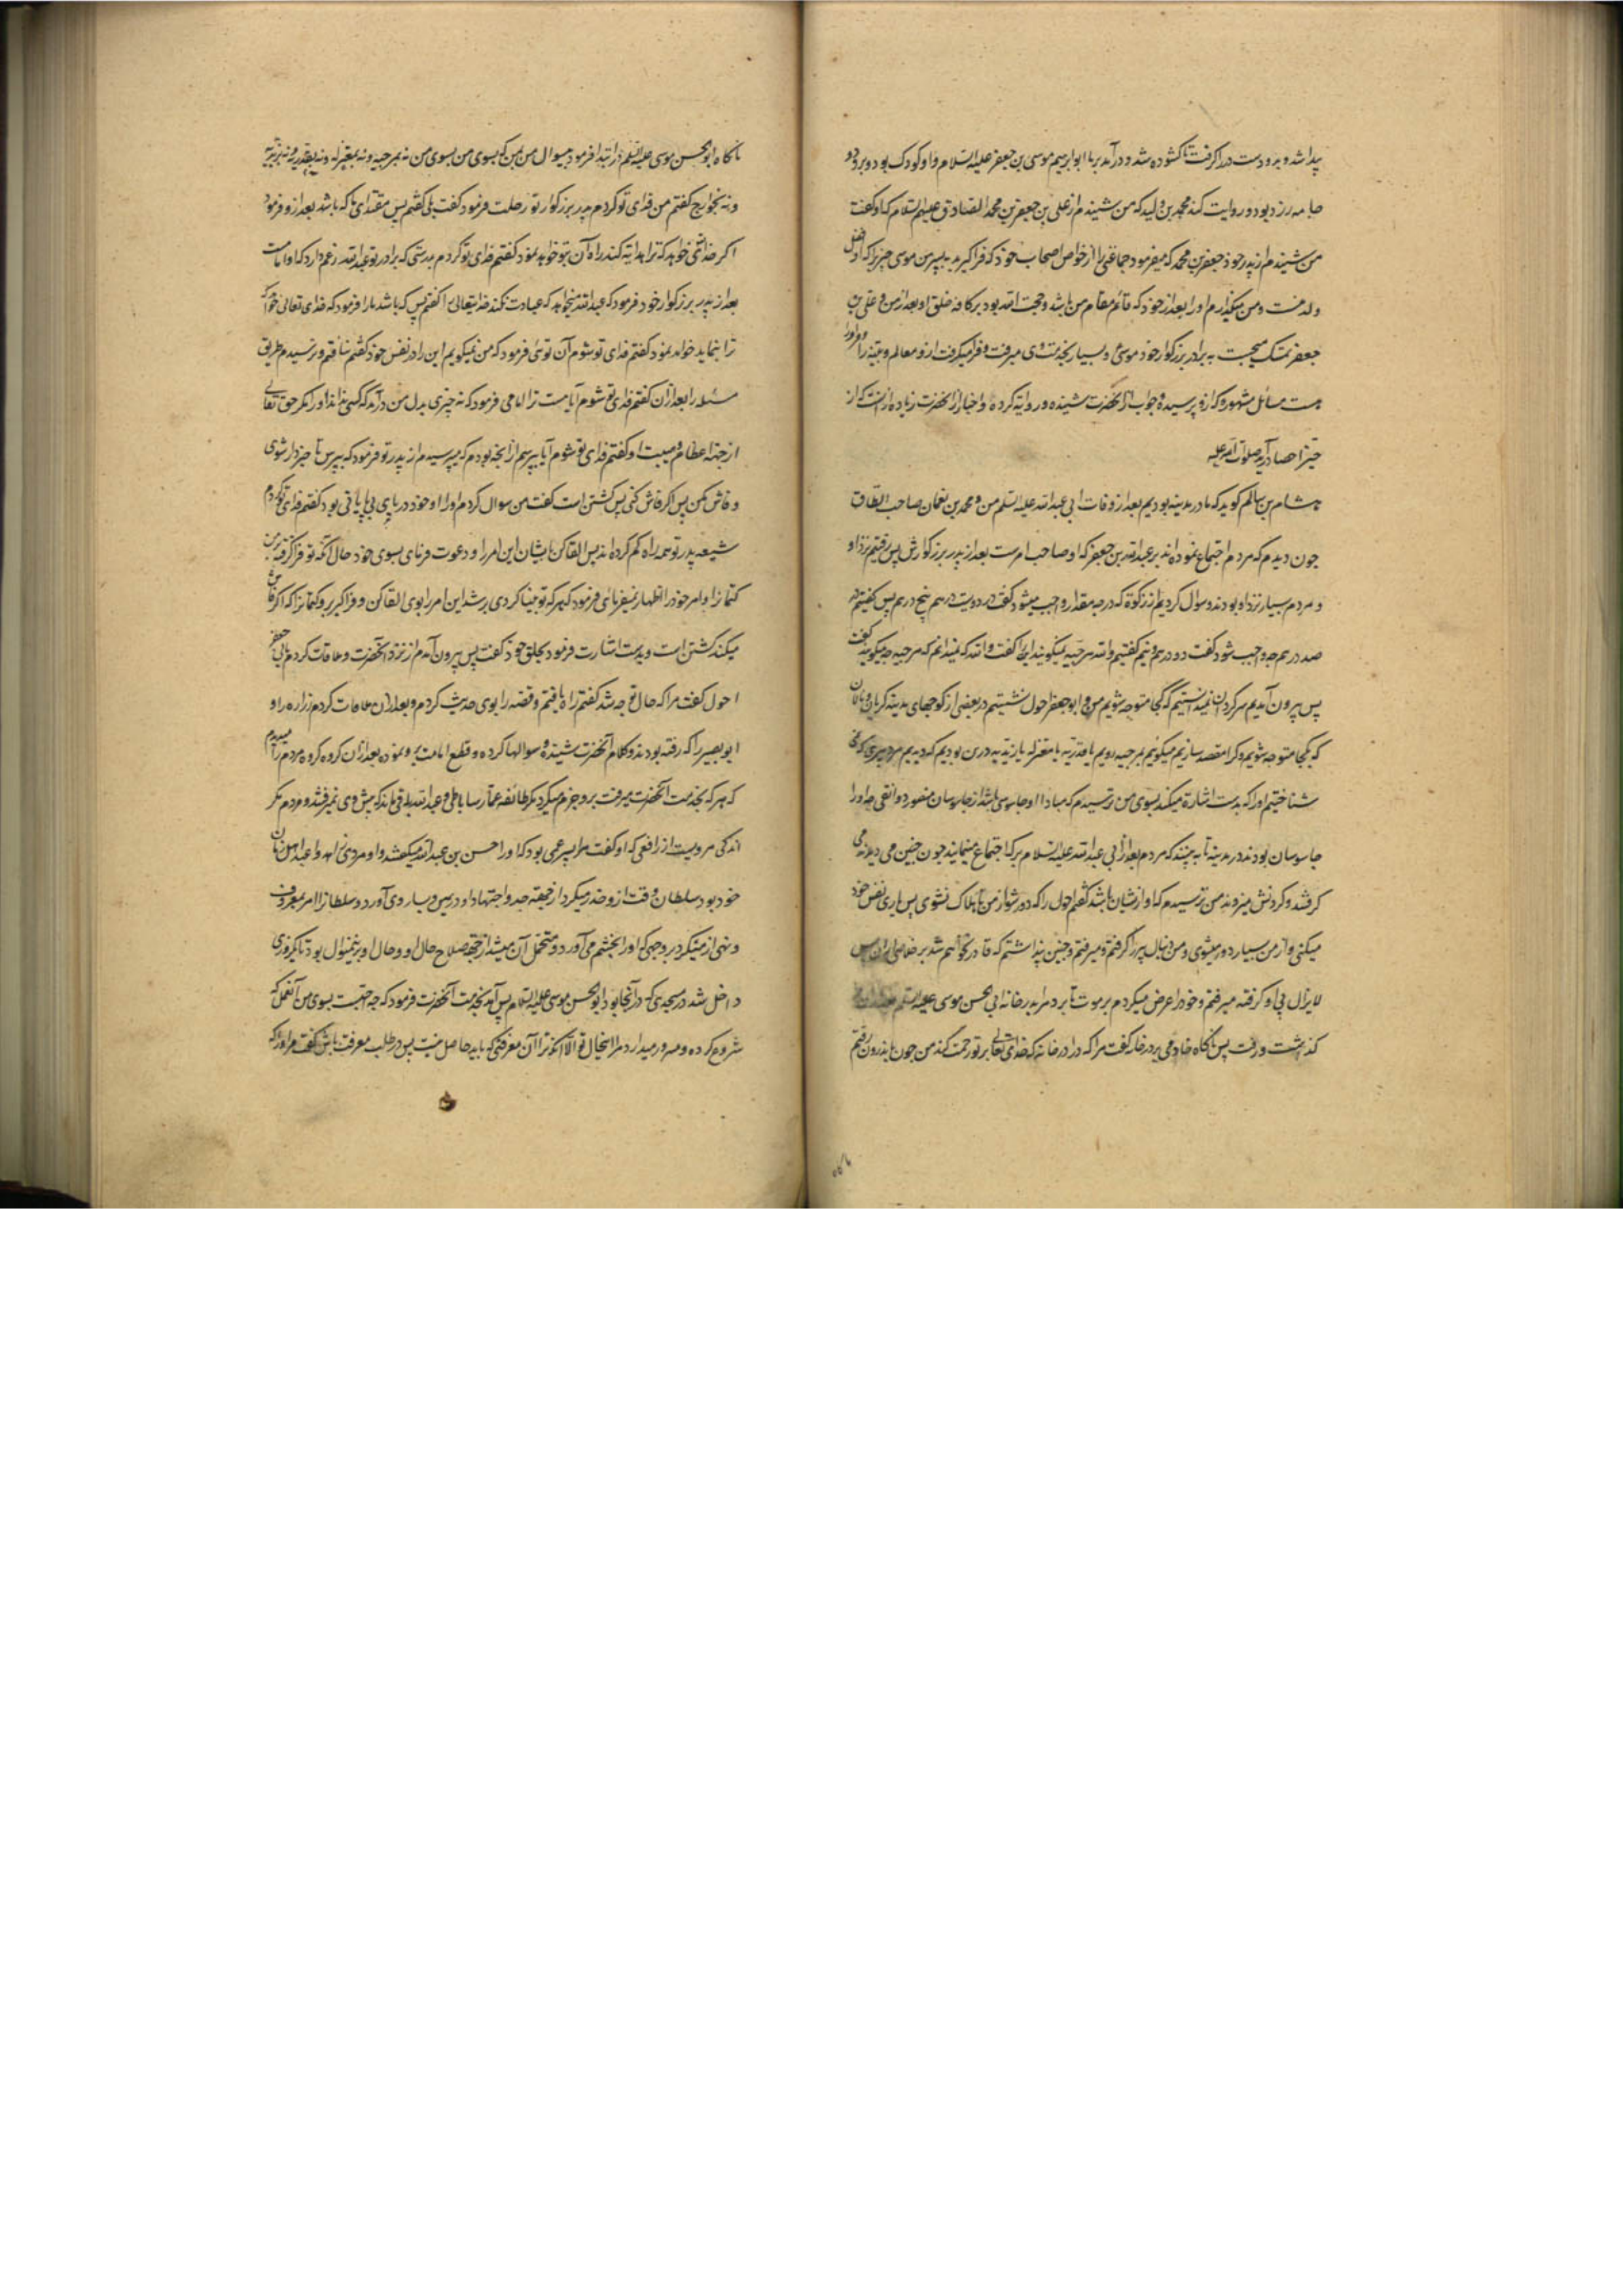 پیدا شد و برو دست در را کرفت تا کشوده شد و در آمد بر ما ابو ابرهیم موسی بن جعفر علیه السلام و او کودک بود و برو دو
جامه زرد بود و روایت کند محمد بن ولید که من شنیدم از علی بن جعفر بن محمد الصادق علیهم السلام که او کفت
من شنیدم از پدر خود جعفر بن محمد که میفرمود جماعتی را از خواص اصحاب خود که فرا کیرید به پسر من موسی خیر زیرا که او افضل
ولد منست و من میکذارم او را بعد از خود که قائم مقام من باشد و حجت الله بود بر کافه خلق او بعد از من و علی بن
جعفر تمسک میجست به برادر بزرکوار خود موسی و بسیار بخدمت وی میرفت و فرا میکرفت ازو معالم دینیه را و مر او را
هست مسائل مشهوره که ازو پرسیده و جواب از آنحضرت شنیده و روایة کرده و اخبار از آنحضرت زیاده از انست که از
حیز احصا در آید صلوات الله علیه
هشام بن سالم کوید که ما در مدینه بودیم بعد از وفات ابی عبد الله علیه السلم من و محمد بن نعمان صاحب الطاق
جون دیدم که مردم اجتماع نموده اند بر عبد الله بن جعفر که او صاحب امرست بعد از پدر بزرکوارش پس رفتیم نزد او
و مردم بسیار نزد او بودند و سوال کردیم از زکوة که در جه مقدار واجب میشود کفت در دویست درهم پنج درهم پس کفتیم در
صد درهم جه واجب شود کفت دو درهم و نیم کفتیم والله مرجیه نمیکویند این را کفت والله که نمیدانم که مرجیه جه میکویند کفت
پس بیرون آمدیم سرکردان نمیدانستیم که کجا متوجه شویم من و ابو جعفر احول نشستیم در بعضی از کوجهای مدینه کریان و نالان
که بکجا متوجه شویم و کرا مقصد سازیم میکوئیم بمرجیه رویم یا قدریه یا معتزله یا زیدیه درین بودیم که دیدیم مرد پیری که نمی
شناختیم او را که بدست اشارة میکند بسوی من ترسیدم که مبادا او جاسوسی باشد از جاسوسان منصور دوانقی جه او را
جاسوسان بودند در مدینه تا به بینند که مردم بعد از ابی عبد الله علیه السلام بر که اجتماع مینمایند جون جنین می دیدند می
کرفتند و کردنش میزدند من ترسیدم که او ازیشان باشد کفتم احول را که دور شو از من تا هلاک نشوی پس یاری نفس خود
میکنی و از من بسیار دور میشوی و من دنبال پیر را کرفتم و میرفتم و جنین پنداشتم که قادر نخواهم شد بر خلاصی ازان پس
لایزال پی او کرفته میرفتم و خود را عرض میکردم بر موت تا برد مرا بدر خانه ابی الحسن موسی علیه السلم
کذاشت و رفت پس ناکاه خادمی بر در خانه کفت مرا که در ا در خانه که خدای تعالی بر تو رحمت کند من جون باندرون رفتم
ناکاه ابو الحسن موسی علیه السلم در ابتدا فرمود بی سوال من بمن که بسوی من بسوی من نه بمرجیه و نه بمعتزله و نه بقدریه و نه بزیدیه
و نه بخوارج کفتم من فدای تو کردم پدر بزرکوار تو رحلت فرمود کفت بلی کفتم پس مقتدای ما که باشد بعد ازو فرمود
اکر خدای خواهد که ترا هدایة کند راه آن بتو خواهد نمود کفتم فدای تو کردم بدرستی که برادر تو عبد الله زعم دارد که او امامست
بعد از پدر بزرکوار خود فرمود که عبد الله میخواهد که عبادت نکند خدایتعالی را کفتم پس که باشد ما را فرمود که خدای تعالی خواهد که
ترا بنماید خواهد نمود کفتم فدای تو شوم آن توئی فرمود که من نمیکویم این را در نفس خود کفتم نیافتم و نرسیدم طریق
مسئله را بعد ازان کفتم فدای تو شوم آیا هست ترا امامی فرمود که نه جیزی بدل من درآمد که کسی نداند او را مکر حق تعالی
از جهة اعظام و هیبت او کفتم فدای تو شوم آیا بپرسم از آنجه بودم که میپرسیدم از پدر تو فرمود که بپرس تا خبردار شوی
و فاش مکن پس اکر فاش کنی پس کشتن است کفت من سوال کردم او را او خود دریای بی پایانی بود کفتم فدای تو کردم
شیعه پدر تو همه راه کم کرده اند پس القا کن بایشان این امر را و دعوت فرمای بسوی خود حال آنکه تو فرا کرفته بر من
کتمانرا و امر خود را اظهار نمیفرمائی فرمود که هر که تو بینا کردی برشد این امر را بوی القا کن و فرا کیر برو کتمانرا که اکر فاش
میکند کشتن است و بدست اشارت فرمود بحلق خود کفت پس بیرون آمدم از نزد آنحضرت و ملاقات کردم بابی جعفر
احول کفت مرا که حال تو جه شد کفتم راه یافتم و قصه را بوی حدیث کردم و بعد ازان ملاقات کردم زراره را و
ابو بصیر را که رفته بودند و کلام آنحضرت شنیده و سوالها کرده و قطع امامت برو نموده بعد ازان کروه کروه مردم را میدیدم
که هر که بخدمت آنحضرت میرفت برو جزم میکرد مکر طائفه عمار ساباطی و عبد الله باقی ماند که پیش وی نمیرفتند مردم مکر
اندکی مرویست از رافعی که او کفت مرا پسر عمی بود که او را حسن بن عبد الله میکفتند و او مردی زاهد و اعبد اهل زمان
خود بود سلطان وقت ازو حذر میکرد از جهة جد و اجتهاد او در دین و بسا روی آورد و سلطانرا امر بمعروف
و نهی از منکر بر وجهی که او را بخشم می آورد و متحمل آن میشد از جهة صلاح حال او و حال او برین منوال بود تا یکروزی
داخل شد در مسجدی که در آنجا بود ابو الحسن موسی علیه السلام پس آمد بخدمت آنحضرت فرمود که جه احبست بسوی من آن عمل که
شروع کرده و مسرور میدارد مرا اینحال تو الا آنکه ترا آن معرفتی که باید حاصل نیست پس در طلب معرفت باش کفت مر او را که